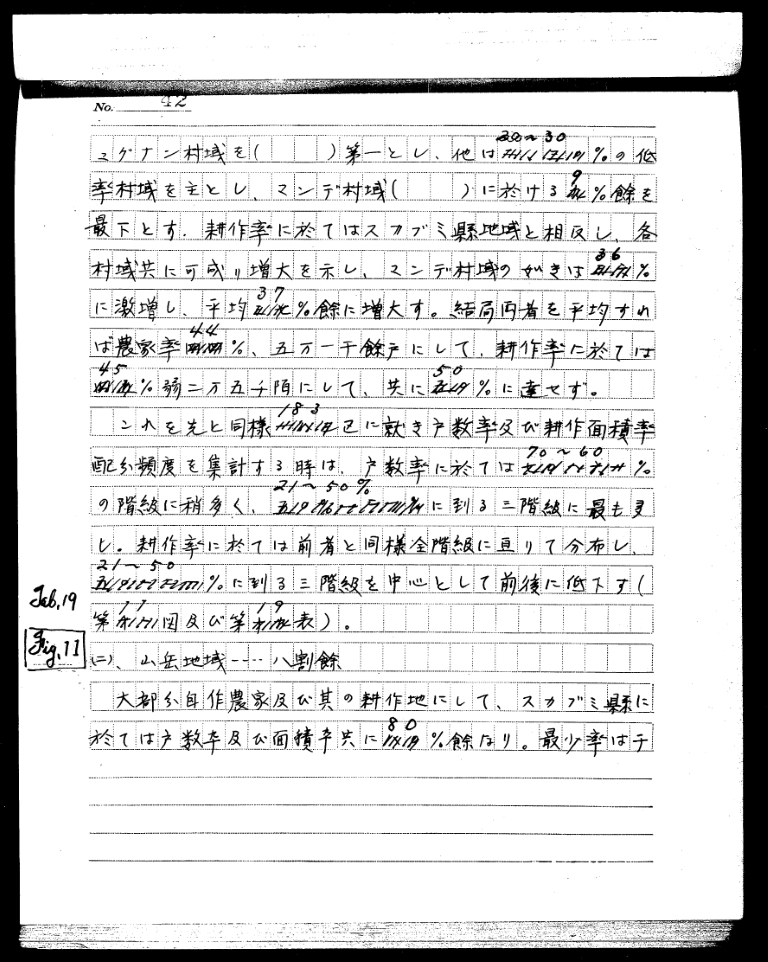 No. 42
ミゲナン村域を(　　)第一とし、他は20〜30%の低
率村域を主とし、マンデ村域(　　)に於ける9%餘を
最下とす。耕作率に於てはスカブミ縣地域と相反し、各
村域共に可成り増大を示し、マンデ村域の如きは36%
に激増し、平均37%餘に増大す。結局両者を平均すれ
ば農家率44%、五万一千餘戸にして、耕作率に於ては
45%弱二万五千陌にして、共に50%に達せず。
これを先と同様183已に就き戸数率及び耕作面積率
配分頻度を集計する時は、戸数率に於ては70〜60%
の階級に稍多く、21〜50%に到る三階級に最も多
し。耕作率に於ては前者と同様全階級に亘りて分布し、
21〜50%に到る三階級を中心として前後に低下す(
Tab.19
第11図及び第19表)。
Fig.11
(二)、山岳地域‥‥八割餘
大部分自作農家及び其の耕作地にして、スカブミ縣に
於ては戸数率及び面積率共に80%餘なり。最少率はチ